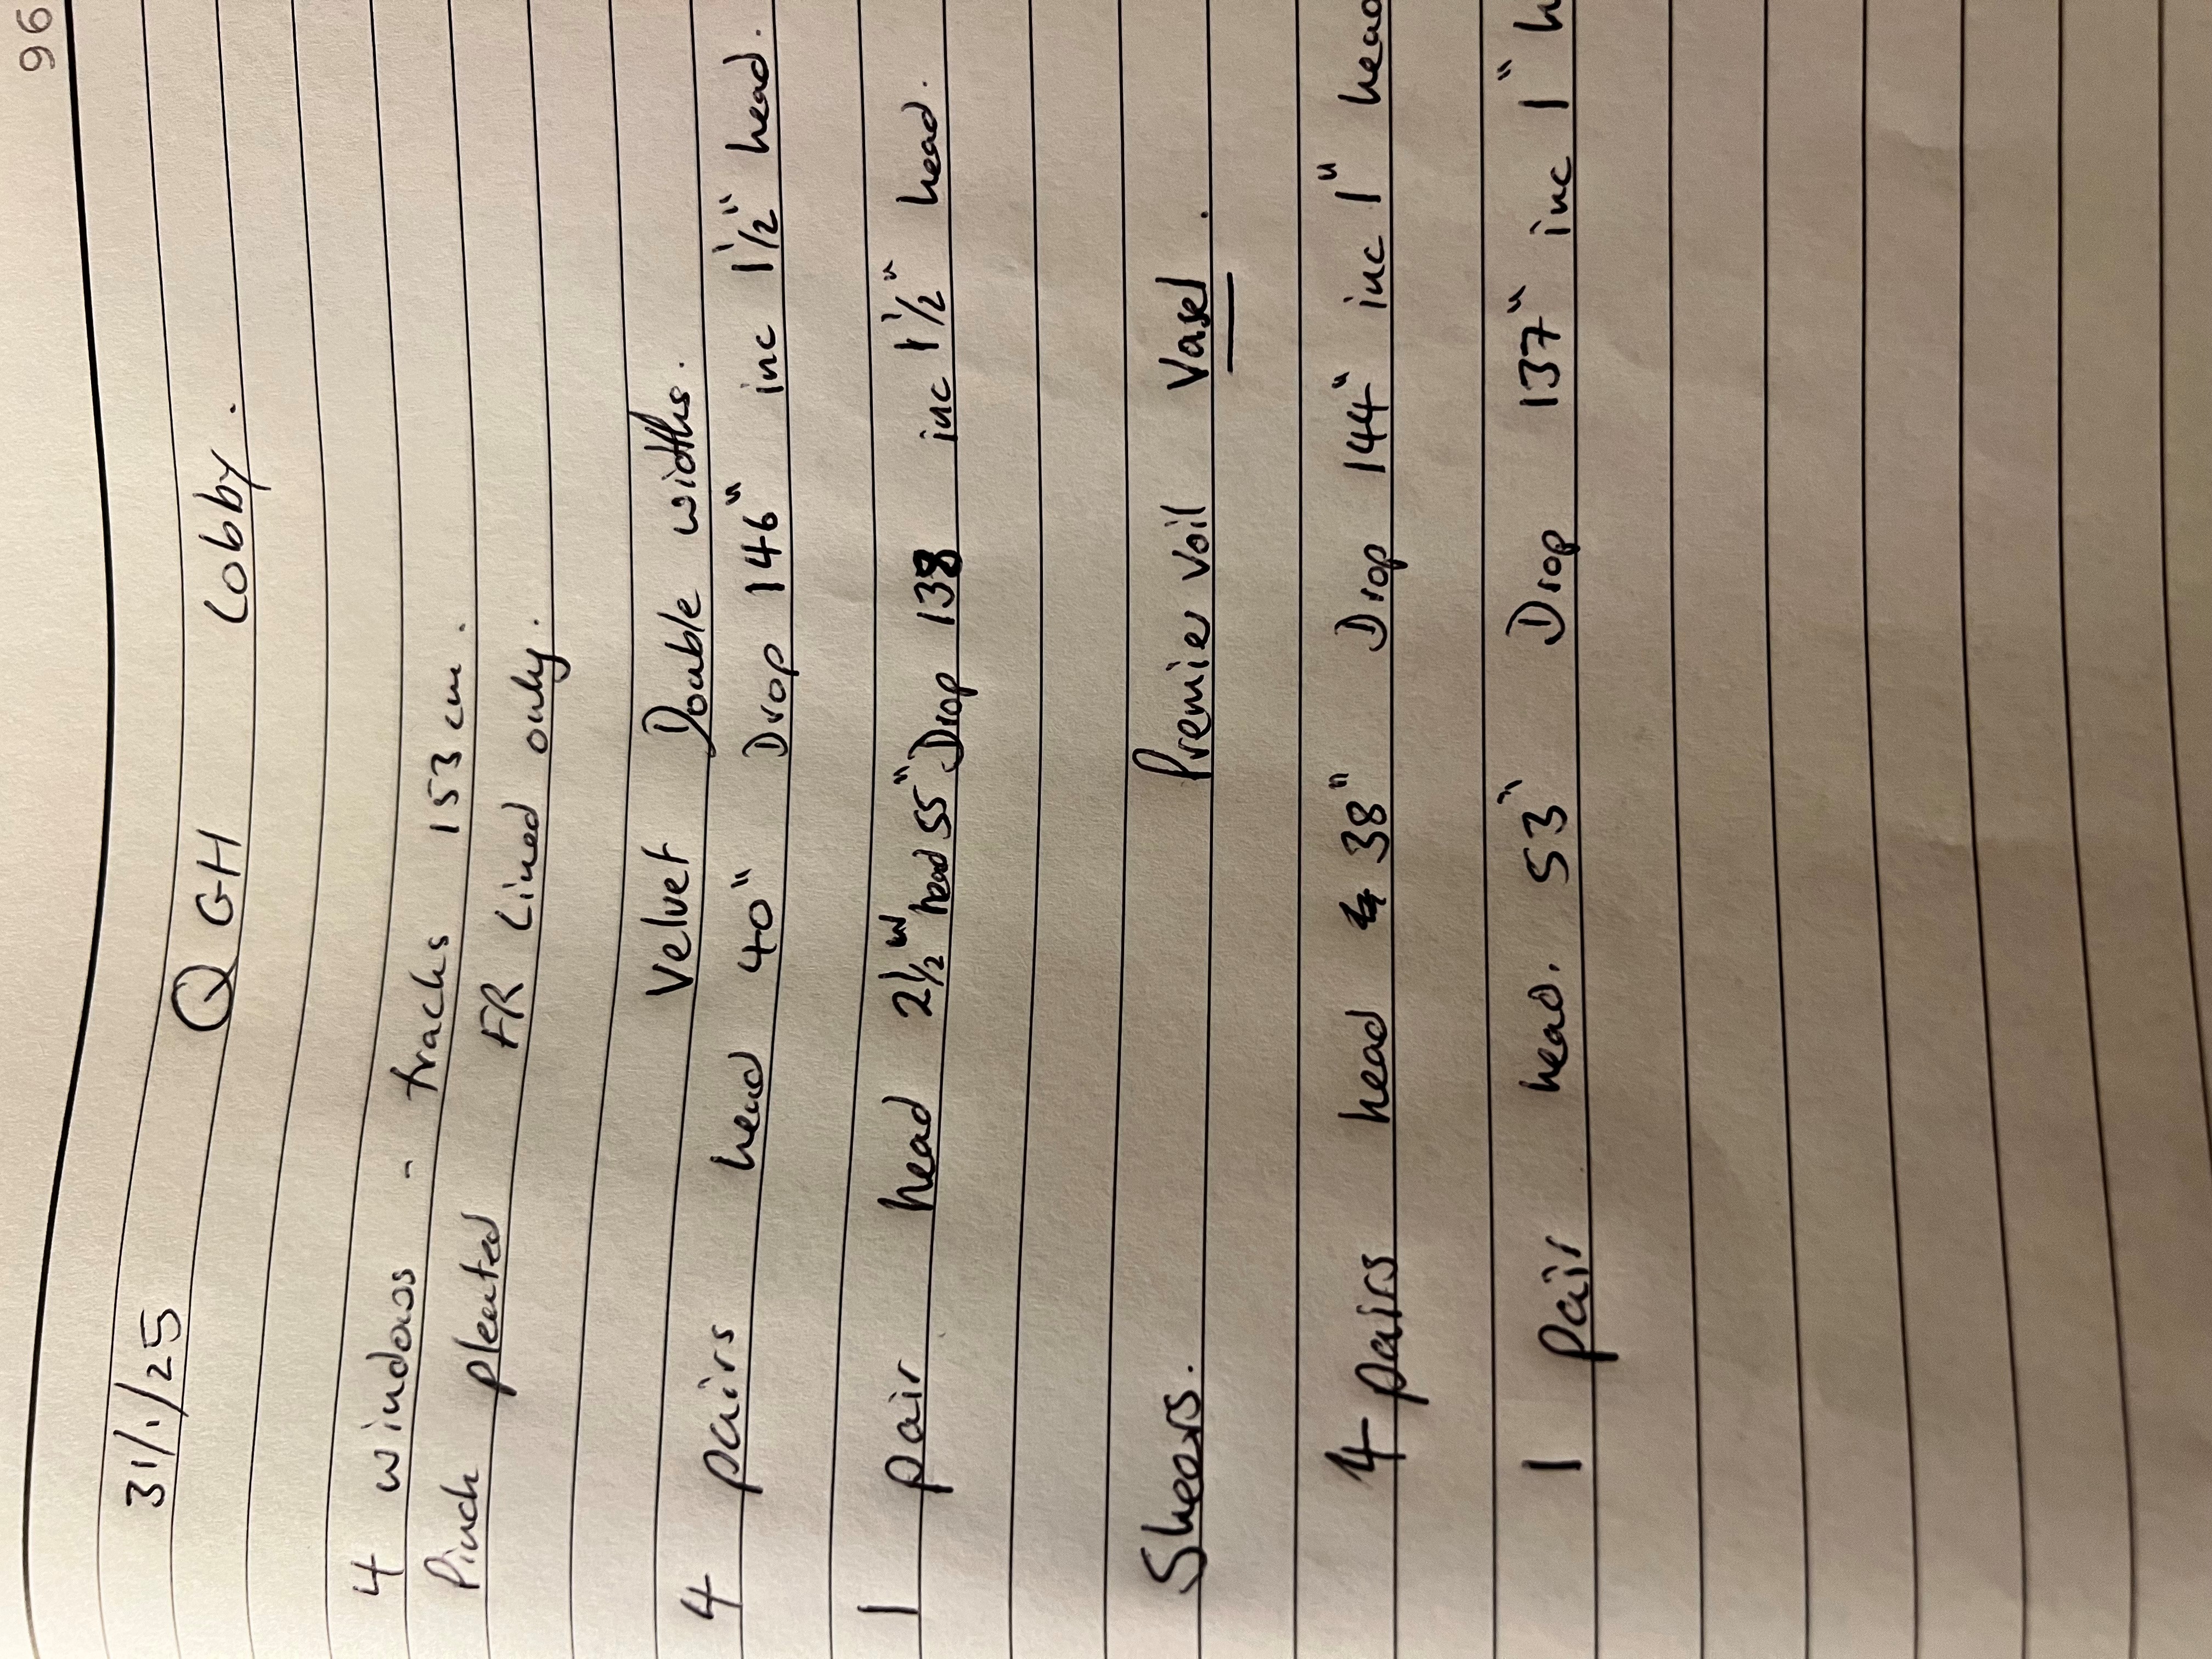 96
31/1/25 QGH Lobby.
4 windows - tracks 153cm.
Pinch pleated FR Lined only.
Velvet Double widths.
4 pairs head 40" Drop 146" inc 1 1/2" head.
1 pair head 2 1/2 W head 55" Drop 138 inc 1 1/2" head.
Sheers. Premier Voil Vasel.
4 pairs head 38" Drop 144" inc 1" head
1 pair head. 53" Drop 137" inc 1" h